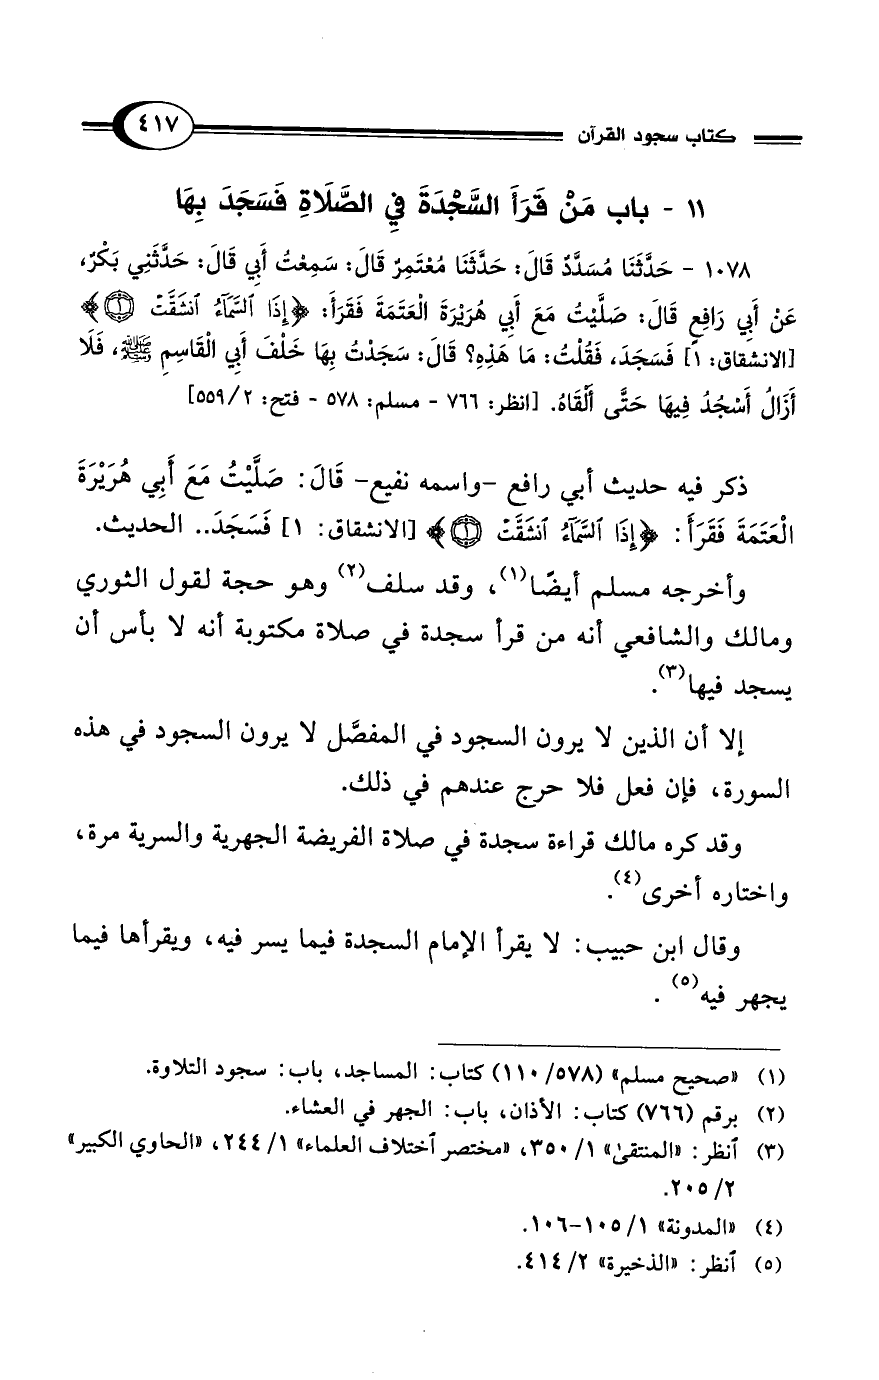 كتاب سجود القرآن ٤١٧
١١ - باب مَنْ قَرَأَ السَّجْدَةَ فِي الصَّلَاةِ فَسَجَدَ بِهَا
١٠٧٨ - حَدَّثَنَا مُسَدَّدٌ قَالَ: حَدَّثَنَا مُعْتَمِرٌ قَالَ: سَمِعْتُ أَبِي قَالَ: حَدَّثَنِي بَكْرٌ،
عَنْ أَبِي رَافِعٍ قَالَ: صَلَّيْتُ مَعَ أَبِي هُرَيْرَةَ الْعَتَمَةَ فَقَرَأَ: ﴿إِذَا ٱلسَّمَآءُ ٱنشَقَّتْ ۝١﴾
[الانشقاق: ١] فَسَجَدَ، فَقُلْتُ: مَا هَذِهِ؟ قَالَ: سَجَدْتُ بِهَا خَلْفَ أَبِي الْقَاسِمِ ﷺ، فَلَا
أَزَالُ أَسْجُدُ فِيهَا حَتَّى أَلْقَاهُ. [انظر: ٧٦٦ - مسلم: ٥٧٨ - فتح: ٢/ ٥٥٩]
ذكر فيه حديث أبي رافع -واسمه نفيع- قَالَ: صَلَّيْتُ مَعَ أَبِي هُرَيْرَةَ
الْعَتَمَةَ فَقَرَأَ: ﴿إِذَا ٱلسَّمَآءُ ٱنشَقَّتْ ۝١﴾ [الانشقاق: ١] فَسَجَدَ.. الحديث.
وأخرجه مسلم أيضًا(١)، وقد سلف(٢) وهو حجة لقول الثوري
ومالك والشافعي أنه من قرأ سجدة في صلاة مكتوبة أنه لا بأس أن
يسجد فيها(٣).
إلا أن الذين لا يرون السجود في المفصَّل لا يرون السجود في هذه
السورة، فإن فعل فلا حرج عندهم في ذلك.
وقد كره مالك قراءة سجدة في صلاة الفريضة الجهرية والسرية مرة،
واختاره أخرى(٤).
وقال ابن حبيب: لا يقرأ الإمام السجدة فيما يسر فيه، ويقرأها فيما
يجهر فيه(٥) .
(١) «صحيح مسلم» (٥٧٨/ ١١٠) كتاب: المساجد، باب: سجود التلاوة.
(٢) برقم (٧٦٦) كتاب: الأذان، باب: الجهر في العشاء.
(٣) ٱنظر: «المنتقىٰ» ١/ ٣٥٠، «مختصر ٱختلاف العلماء» ١/ ٢٤٤، «الحاوي الكبير»
٢/ ٢٠٥.
(٤) «المدونة» ١/ ١٠٥-١٠٦.
(٥) ٱنظر: «الذخيرة» ٢/ ٤١٤.